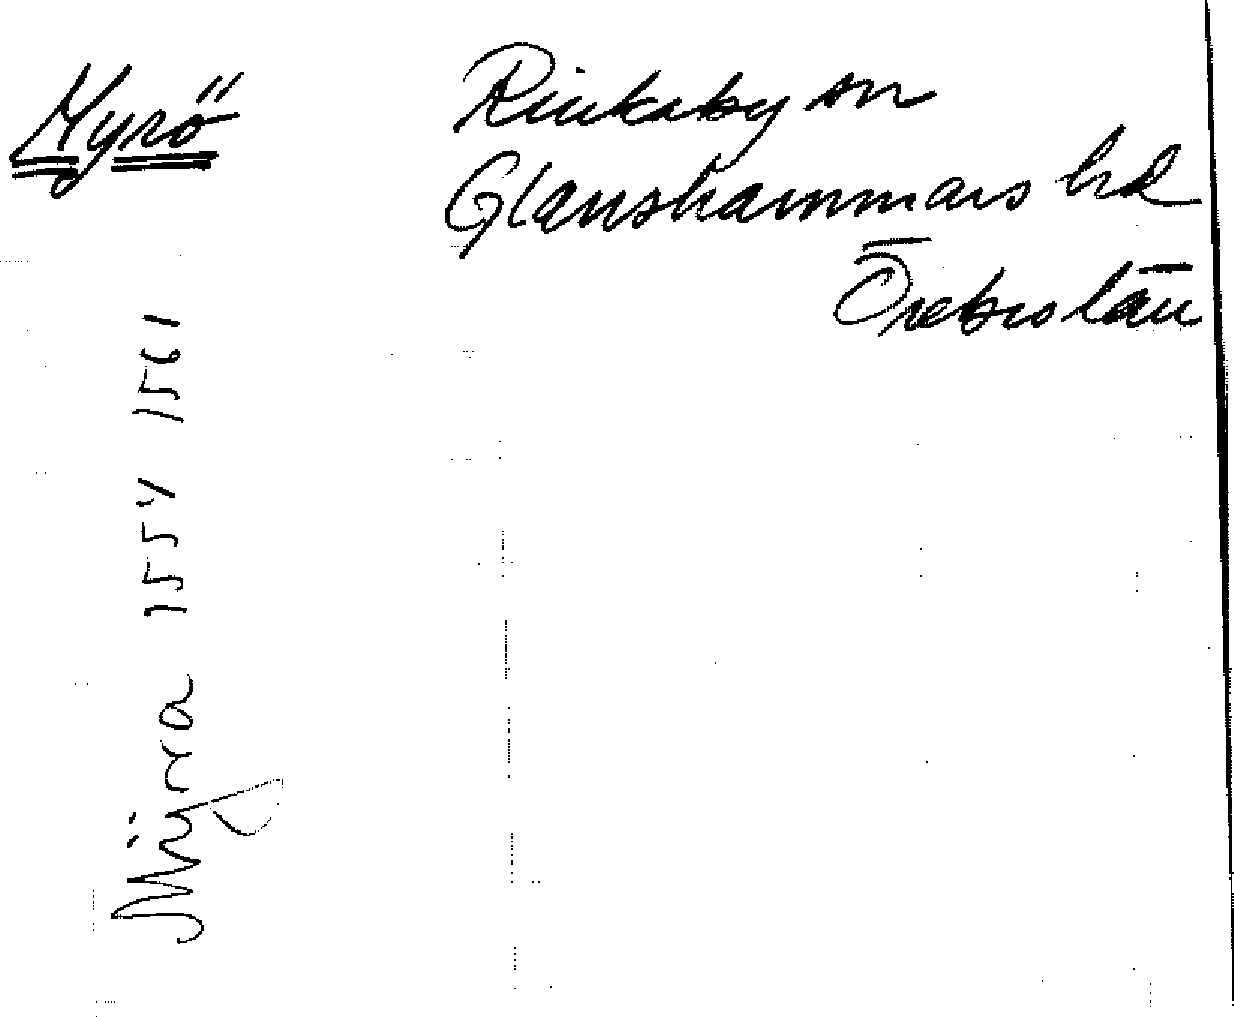 Myrö
Rinkaby sn
Glanshammars hd
Örebro län
Mÿra 1554 1561